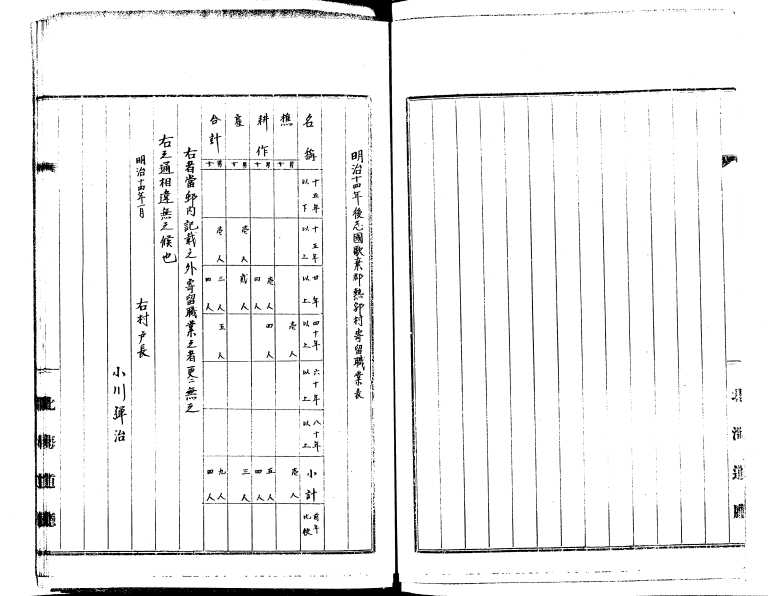 明治十四年後志國歌棄郡熱郛村寄留職業表
名稱 十五年以下 十五年以上 廿年以上 四十年以上 六十年以上 八十年以上 小計 前年比較
樵 男 女 壱人 壱人
耕作 男 女 壱人 四人 四人 五人 四人
雇 男 女 壱人 貳人 三人
合計 男 女 壱人 三人 四人 五人 九人 四人
右者當郛内記載之外寄留職業之者更ニ無之
右之通相違無之候也
明治十四年一月
右村戸長
小川彈治
北海道廳